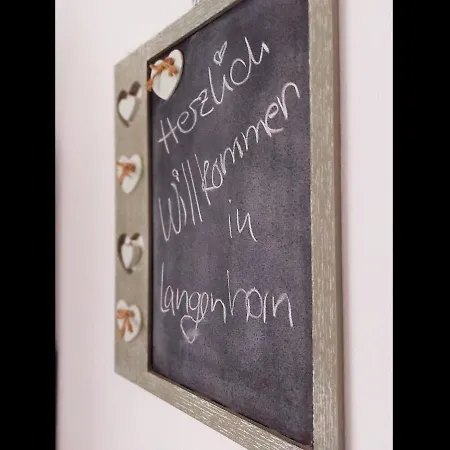 Herzlich
Willkommen
in
Langenhorn